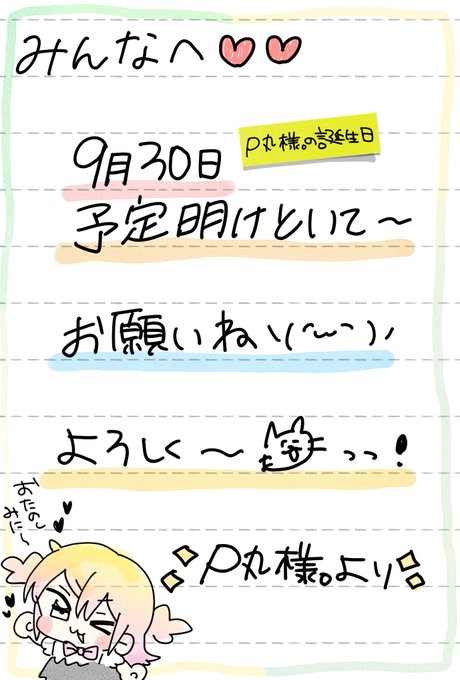 みんなへ♥♥
P丸様。の誕生日
9月30日
予定明けといて～
お願いねヽ(˘ω˘)ﾉ
よろしく～っっ!
おたのし
みに～
P丸様。より